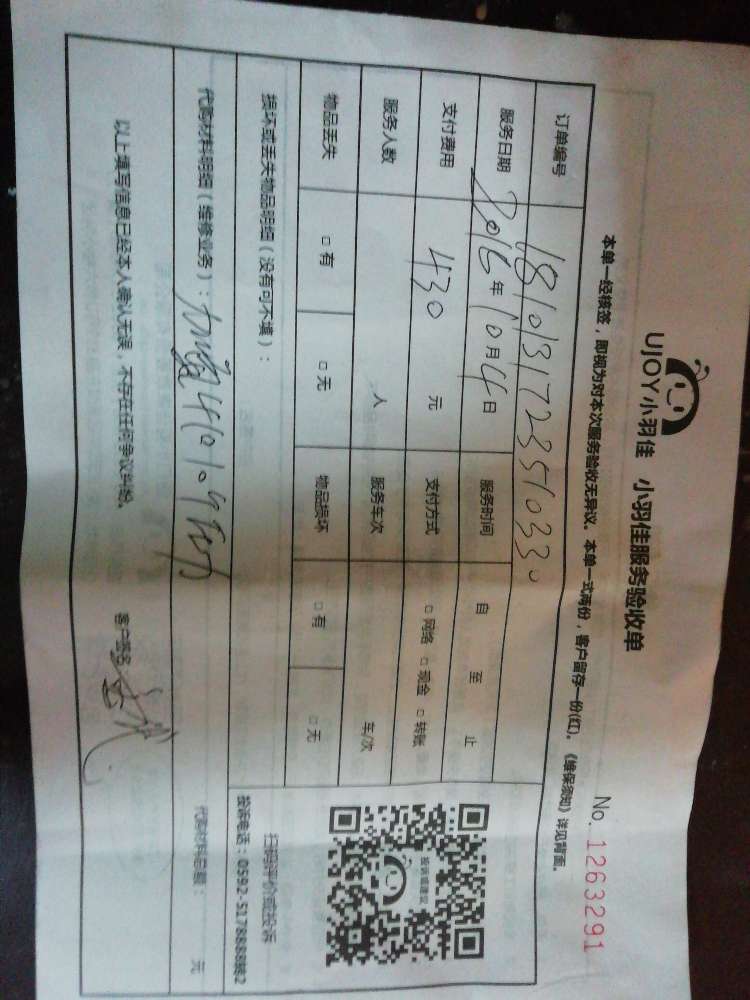 UJOY小羽佳 小羽佳服务验收单
No. 1263291
本单一经核签，即视为对本次服务验收无异议。本单一式两份，客户留存一份(红)。《维保须知》详见背面。
订单编号 181013172351033
服务日期 2018年10月4日 服务时间 自 至 止
支付费用 430 元 支付方式 □网络 □现金 □转账
服务人数 人 服务车次 车/次
物品丢失 □有 □无 物品损坏 □有 □无
损坏或丢失物品明细（没有可不填）：
被骗或建议
扫码评价或投诉
投诉电话：0592-5178888转2
代购材料明细（维修业务）：加氟410
代购材料总额： 元
以上填写信息已经本人确认无误，不存在任何争议纠纷。
客户签名